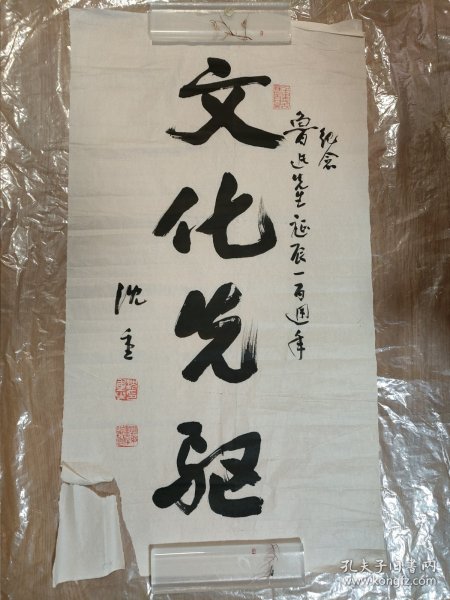 纪念
鲁迅先生诞辰一百週年
文化先驱
沈重
孔夫子旧书网
www.kongfz.com